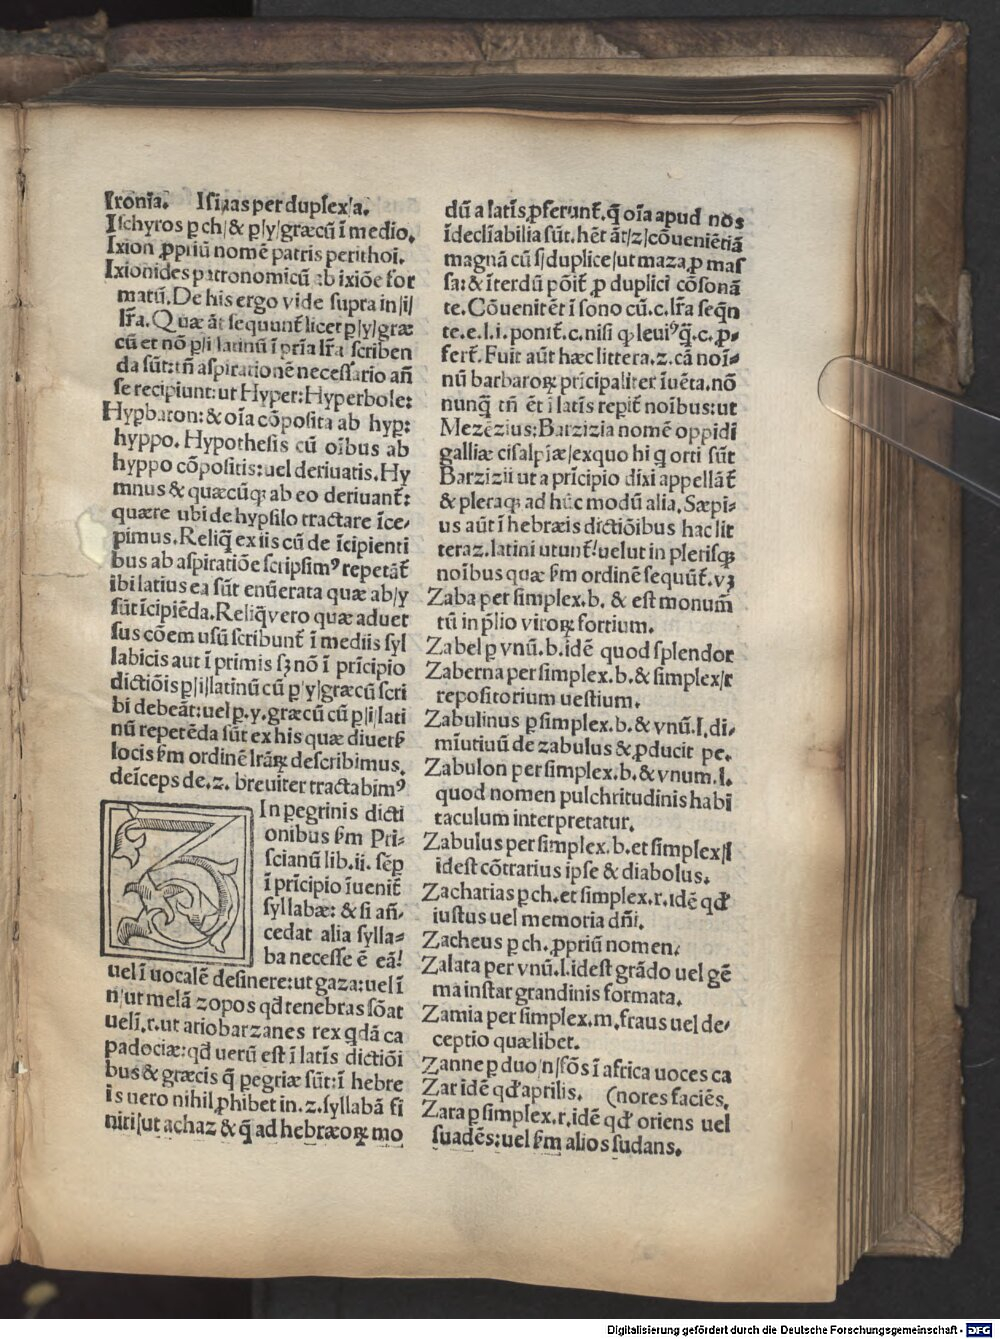 Ironĩa. Isinas per duplex/a.
Ischyros p ch/ & p/y/græcũ ĩ medio.
Ixion ꝓpriũ nomẽ patris perithoi.
Ixionides patronomicũ ab ixiõe for
matũ. De his ergo vide supra in/i/
lr̃a. Quæ ãt sequunt̃ licet p/y/græ
cũ et nõ p/i latinũ ĩ prĩa lr̃a scriben
da sũt: tñ aspirationẽ necessario añ
se recipiunt: ut Hyper: Hyperbole:
Hypbaton: & oĩa cõposita ab hyp:
hyppo. Hypothesis cũ oĩbus ab
hyppo cõpositis: uel deriuatis. Hy
mnus & quæcũqꝫ ab eo deriuant̃:
quære ubi de hypsilo tractare ĩce,
pimus. Reliq̃ ex iis cũ de ĩcipienti
bus ab aspiratiõe scripsimꝰ repetãt̃
ibi latius ea sũt enũerata quæ ab/y
sũt ĩcipiẽda. Reliq̃ vero quæ aduer
sus cõem usũ scribunt̃ ĩ mediis syl
labicis aut ĩ primis sꝫ nõ ĩ prĩcipio
dictiõis p/i/latinũ cũ p/y/græcũ scri
bi debeãt: uel p.y. græcũ cũ p/i/lati
nũ repetẽda sũt ex his quæ diuersꝭ
locis ẜm ordinẽ lr̃aꝝ describimus.
deĩceps de.z. breuiter tractabimꝰ
In pegrinis dicti
onibus ẜm Pri-
scianũ lib.ii. sẽp
ĩ prĩcipio ĩuenit̃
syllabæ: & si añ,
cedat alia sylla-
ba necesse ẽ eã!
uel ĩ uocalẽ desinere: ut gaza: uel ĩ
n/ut melã zopos qđ tenebras sõat
uel ĩ.r. ut ariobarzanes rex qdã ca
padociæ: qđ uerũ est ĩ latĩs dictiõi
bus & græcis q̃ pegriæ sũt: ĩ hebre
is uero nihil ꝓhibet in.z. syllabã fi
niri/ut achaz & q̃ ad hebræoꝝ mo
dũ a latĩs ꝓferunt̃. q̃ oĩa apud nos
ĩdeclĩabilia sũt. hẽt ãt/z/cõueniẽtiã
magnã cũ s/duplice/ut maza ꝓ mas
sa: & ĩterdũ põit̃ ꝓ duplici cõsonã
te. Cõuenit ẽt ĩ sono cũ.c. lr̃a seq̃n
te.e.l.i. ponit̃.c. nisi qꝫ leuiꝰ q̃.c. ꝓ-
fert̃. Fuit aũt hæc littera.z. cã noĩ-
nũ barbaroꝝ prĩcipaliter ĩuẽta. nõ
nunq̃ tñ ẽt ĩ latĩs repit̃ noĩbus: ut
Mezẽzius: Barzizia nomẽ oppidi
galliæ cisalpĩæ/ex quo hi q orti sũt
Barzizii ut a prĩcipio dixi appellãt̃
& pleraqꝫ ad hũc modũ alia. Sæpi-
us aũt ĩ hebræis dictiõibus hac lit
tera z. latini utunt̃! uelut in plerisqꝫ
noĩbus quæ ẜm ordinẽ sequũt̃. vꝫ
Zaba per simplex.b. & est monum̃
tũ in p̃lio viroꝝ fortium.
Zabel p vnũ.b. idẽ quod splendor
Zaberna per simplex.b. & simplex/r
repositorium uestium.
Zabulinus p simplex.b. & vnũ.l. di,
mĩutiuũ de zabulus & ꝓducit pe.
Zabulon per simplex.b. & vnum.l.
quod nomen pulchritudinis habi
taculum interpretatur.
Zabulus per simplex.b. et simplex/l
idest cõtrarius ipse & diabolus.
Zacharias p ch. et simplex.r. idẽ qđ
iustus uel memoria dñi.
Zacheus p ch. ꝓpriũ nomen.
Zalata per vnũ.l. idest grãdo uel gẽ
ma instar grandinis formata.
Zamia per simplex.m. fraus uel de,
ceptio quælibet.
Zanne p duo/n/fõs ĩ africa uoces ca
Zar idẽ qđ aprilis. (nores faciẽs.
Zara p simplex.r. idẽ qđ oriens uel
suadẽs: uel ẜm alios sudans.
Digitalisierung gefördert durch die Deutsche Forschungsgemeinschaft - DFG